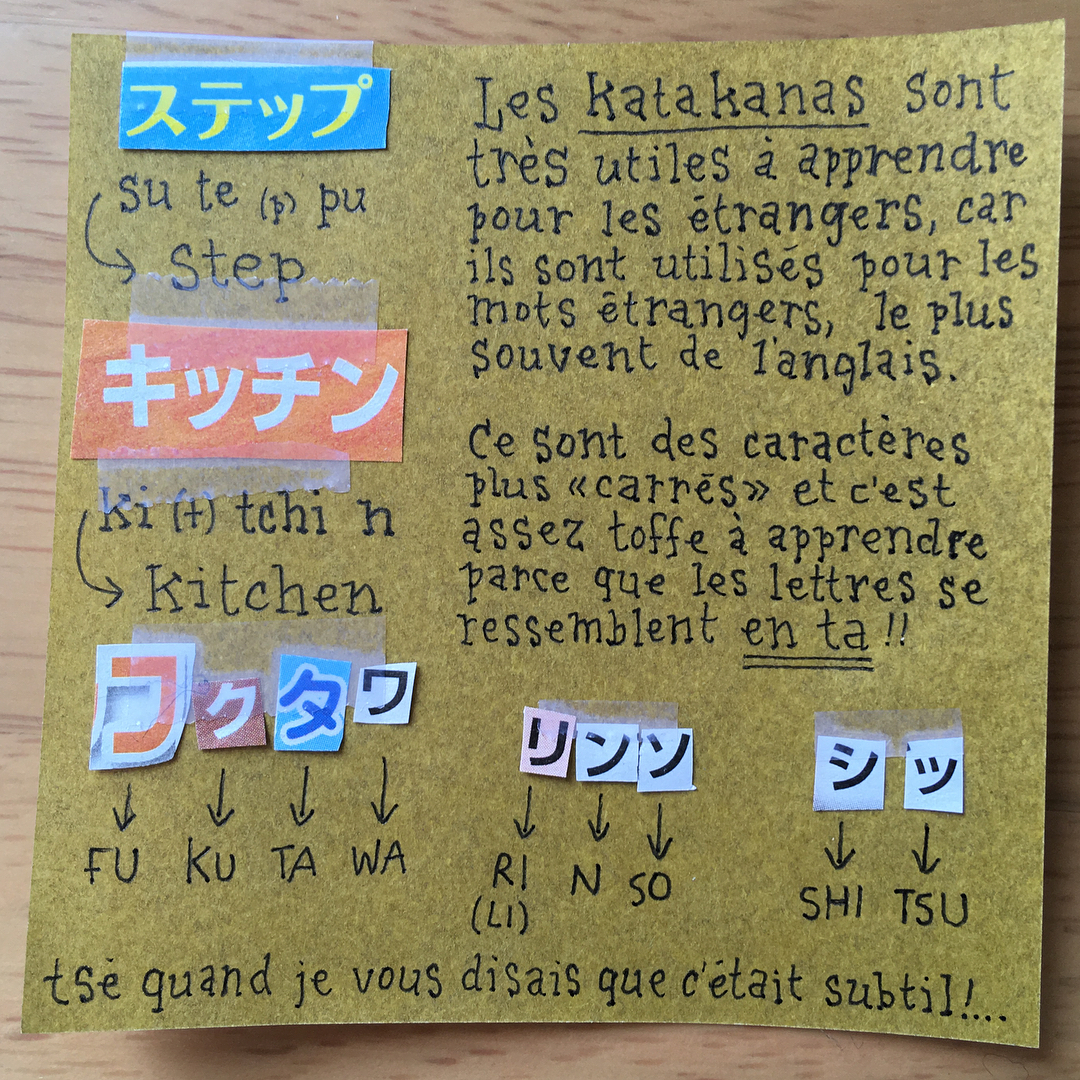 ステップ
su te (p) pu
step
キッチン
ki (t) tchi n
kitchen
フ ク タ ワ
FU KU TA WA
Les katakanas sont
très utiles à apprendre
pour les étrangers, car
ils sont utilisés pour les
mots étrangers, le plus
souvent de l'anglais.
Ce sont des caractères
plus «carrés» et c'est
assez toffe à apprendre
parce que les lettres se
ressemblent en ta!!
リ ン ソ
RI N SO
(LI)
シ ッ
SHI TSU
tsé quand je vous disais que c'était subtil!...